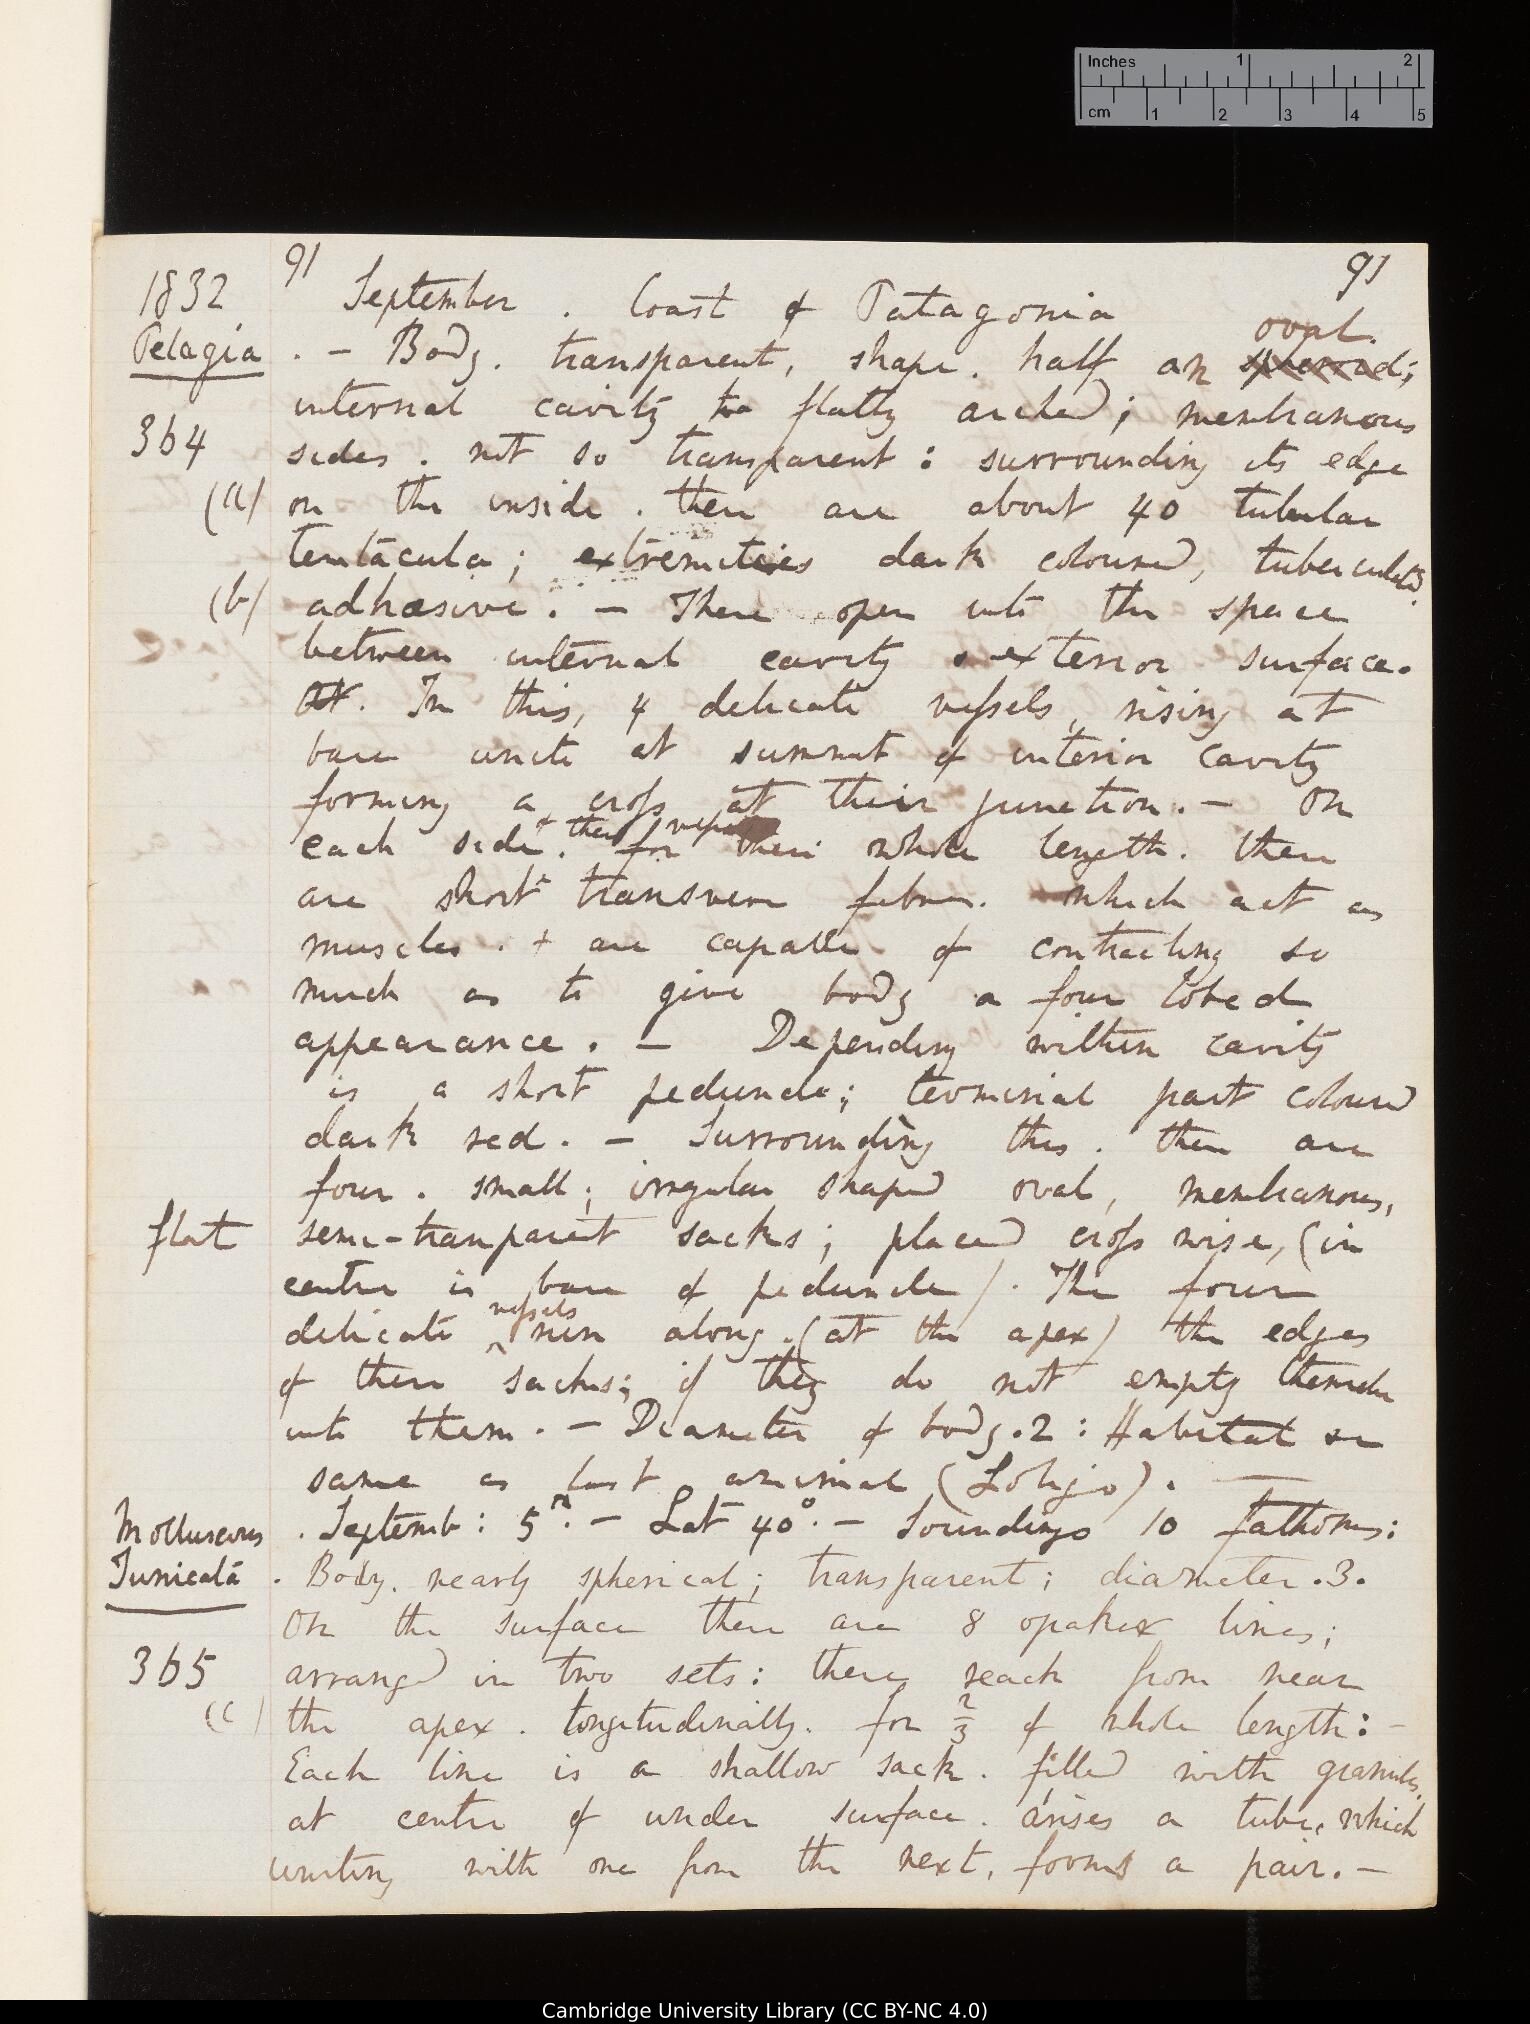 Inches 1 2
cm 1 2 3 4 5
91 91
1832 September. Coast of Patagonia
oval.
Pelagia . — Body. transparent, shape. half an spheroid;
internal cavity flatly arched; membranous
364 sides. not so transparent: surrounding its edge
(a) on the inside. there are about 40 tubular
tentacula; extremities dark coloured, tuberculated
(b) adhæsive. — These open into the space
between internal cavity & exterior surface.
In this, 4 delicate vessels, rising at
base unite at summit of interior cavity
forming a cross at their junction. — On
of these vessels
each side. for their whole length. there
are short transverse fibres. which act as
muscles. + are capable of contracting so
much as to give body a four lobed
appearance. — Depending within cavity
is a short peduncle; terminal part coloured
dark red. — Surrounding this. there are
four. small; irregular shaped oval, membranous,
flat semi-transparent sacks; placed cross wise, (in
centre is base of peduncle). The four
vessels
delicate ^ run along. (at the apex) the edges
of these sacks; if they do not empty themselves
into them. — Diameter of body .2: Habitat
same as last animal (Loligo). —
Molluscous . Septemb: 5th. — Lat 40°. — Soundings 10 fathoms:
Tunicata . Body. nearly spherical; transparent; diameter .3.
On the surface there are 8 opake lines;
365 arranged in two sets: these reach from near
(c) the apex. longitudinally. for 2/3 of whole length: —
Each line is a shallow sack. filled with granules,
at centre of under surface. arises a tube, which
uniting with one from the next, forms a pair. —
Cambridge University Library (CC BY-NC 4.0)